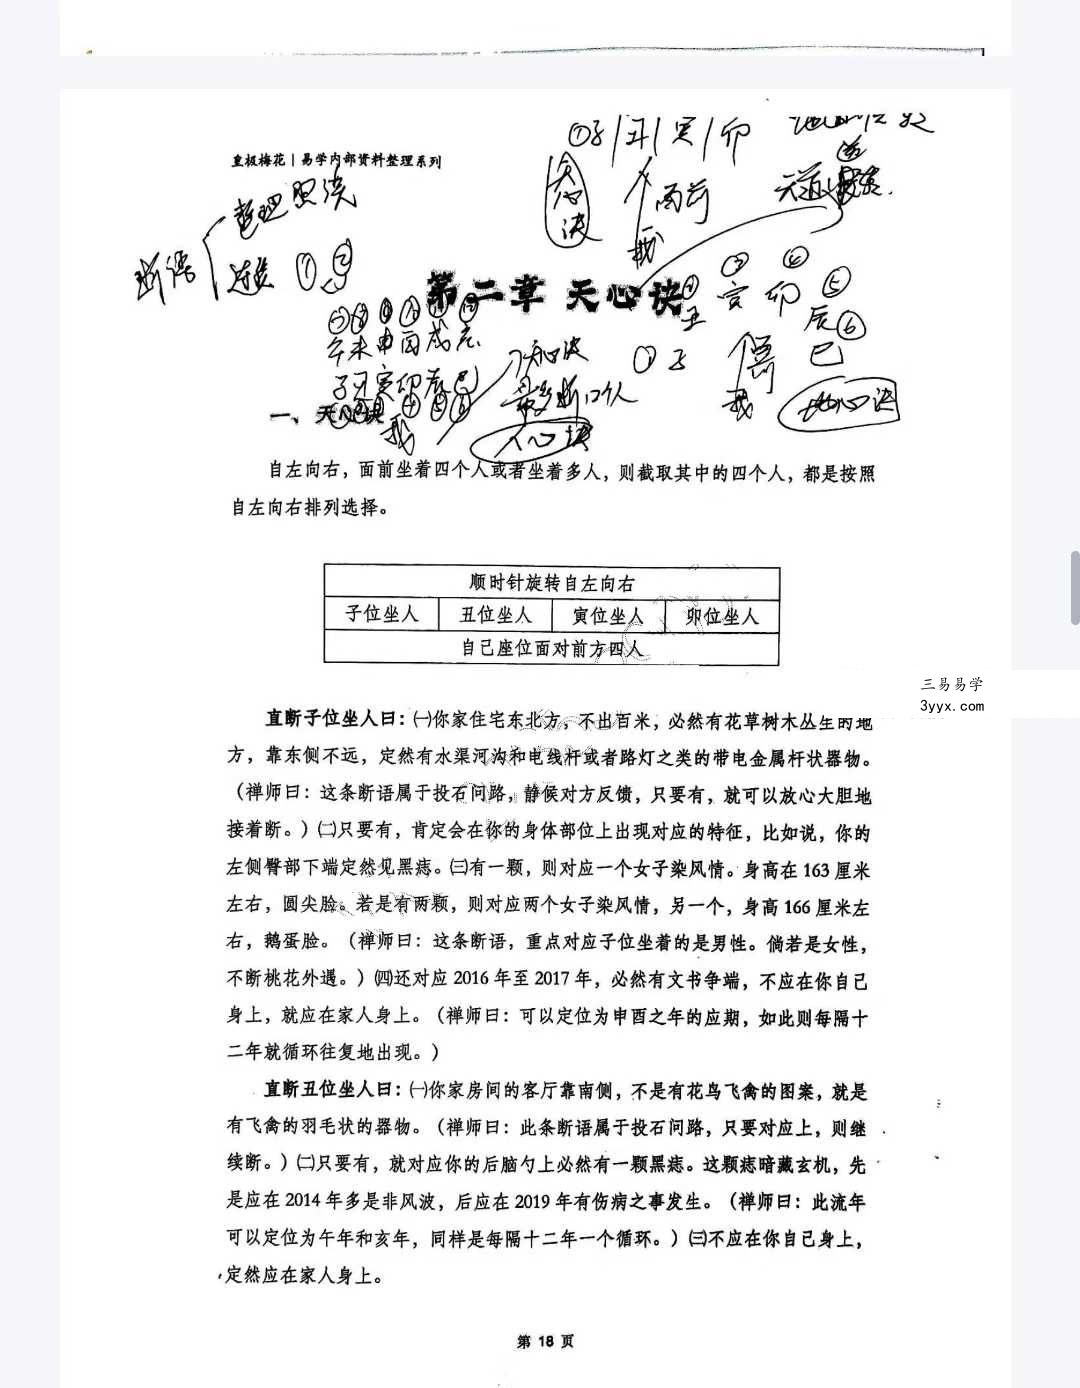 ①子|丑|寅|卯
皇极梅花|易学内部资料整理系列
天心诀
面前
整理 口诀
我
断语
连接 ① ②
第二章 天心诀
丑 寅 卯 ③ ④ ⑤
辰 ⑥
午未申酉戌亥
天心诀
① 子
巳
子丑寅卯辰巳
最多断12个人
我
地心诀
一、天心诀
我
人心诀
自左向右，面前坐着四个人或者坐着多人，则截取其中的四个人，都是按照
自左向右排列选择。
顺时针旋转自左向右
子位坐人 丑位坐人 寅位坐人 卯位坐人
自己座位面对前方四人
三易易学
3yyx.com
直断子位坐人曰：㈠你家住宅东北方，不出百米，必然有花草树木丛生的地
方，靠东侧不远，定然有水渠河沟和电线杆或者路灯之类的带电金属杆状器物。
（禅师曰：这条断语属于投石问路，静候对方反馈，只要有，就可以放心大胆地
接着断。）㈡只要有，肯定会在你的身体部位上出现对应的特征，比如说，你的
左侧臀部下端定然见黑痣。㈢有一颗，则对应一个女子染风情。身高在 163 厘米
左右，圆尖脸。若是有两颗，则对应两个女子染风情，另一个，身高 166 厘米左
右，鹅蛋脸。（禅师曰：这条断语，重点对应子位坐着的是男性。倘若是女性，
不断桃花外遇。）㈣还对应 2016 年至 2017 年，必然有文书争端，不应在你自己
身上，就应在家人身上。（禅师曰：可以定位为申酉之年的应期，如此则每隔十
二年就循环往复地出现。）
直断丑位坐人曰：㈠你家房间的客厅靠南侧，不是有花鸟飞禽的图案，就是
有飞禽的羽毛状的器物。（禅师曰：此条断语属于投石问路，只要对应上，则继
续断。）㈡只要有，就对应你的后脑勺上必然有一颗黑痣。这颗痣暗藏玄机，先
是应在 2014 年多是非风波，后应在 2019 年有伤病之事发生。（禅师曰：此流年
可以定位为午年和亥年，同样是每隔十二年一个循环。）㈢不应在你自己身上，
定然应在家人身上。
第 18 页